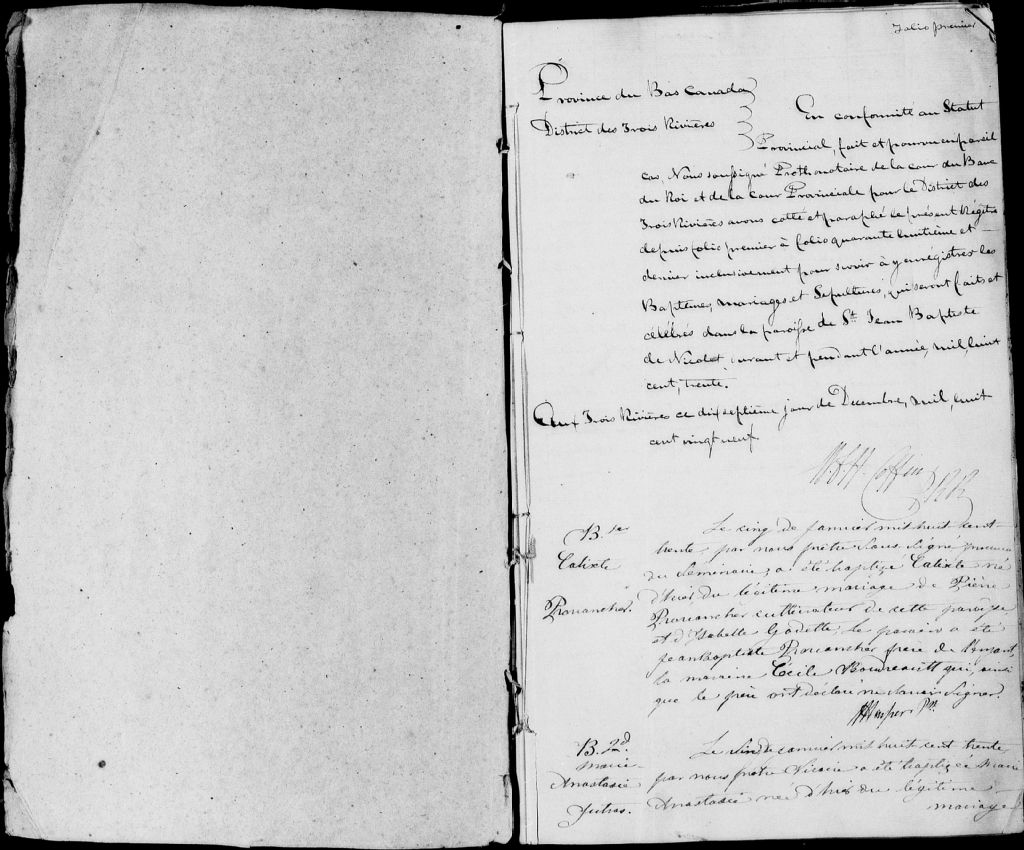 Folio premier
Province du Bas Canada
District des Trois Rivières
En conformité au Statut
Provincial, fait et pourvu en pareil
cas, Nous soussigné Prothonotaire de la cour du Banc
du Roi et de la Cour Provinciale pour le District des
Trois Rivières avons cotté et paraphé le présent Régitre
depuis folio premier à folio quarante huitième et
dernier inclusivement pour servir à y enrégistrer les
Baptêmes, mariages et Sépultures, qui seront faits et
célébrés dans la paroisse de St. Jean Baptiste
de Nicolet, durant et pendant l'année, mil, huit
cent, trente.
Aux Trois Rivières ce dix septième jour de Decembre, mil, huit
cent vingt neuf
Coffin
B. 1er
Calixte
Prouancher.
Le cinq de Janvier mil huit cent
trente, par nous prêtre Sous Signé procureur
du Seminaire, a été baptizé Calixte né
d'hier du légitime mariage de Pière
Prouancher cultivateur de cette paroisse
et d'Isabelle Godette; le parein a été
Jean Baptiste Prouancher frere de l'enfant,
la maraine Cécile Boudreault qui, ainsi
que le père ont déclaré ne Savoir Signer.
Ptre
B. 2d.
Marie
Anastasie
Jutras.
Le Six de Janvier mil huit cent trente
par nous prêtre Vicaire a été baptizée Marie
Anastasie née d'hier du légitime
mariage